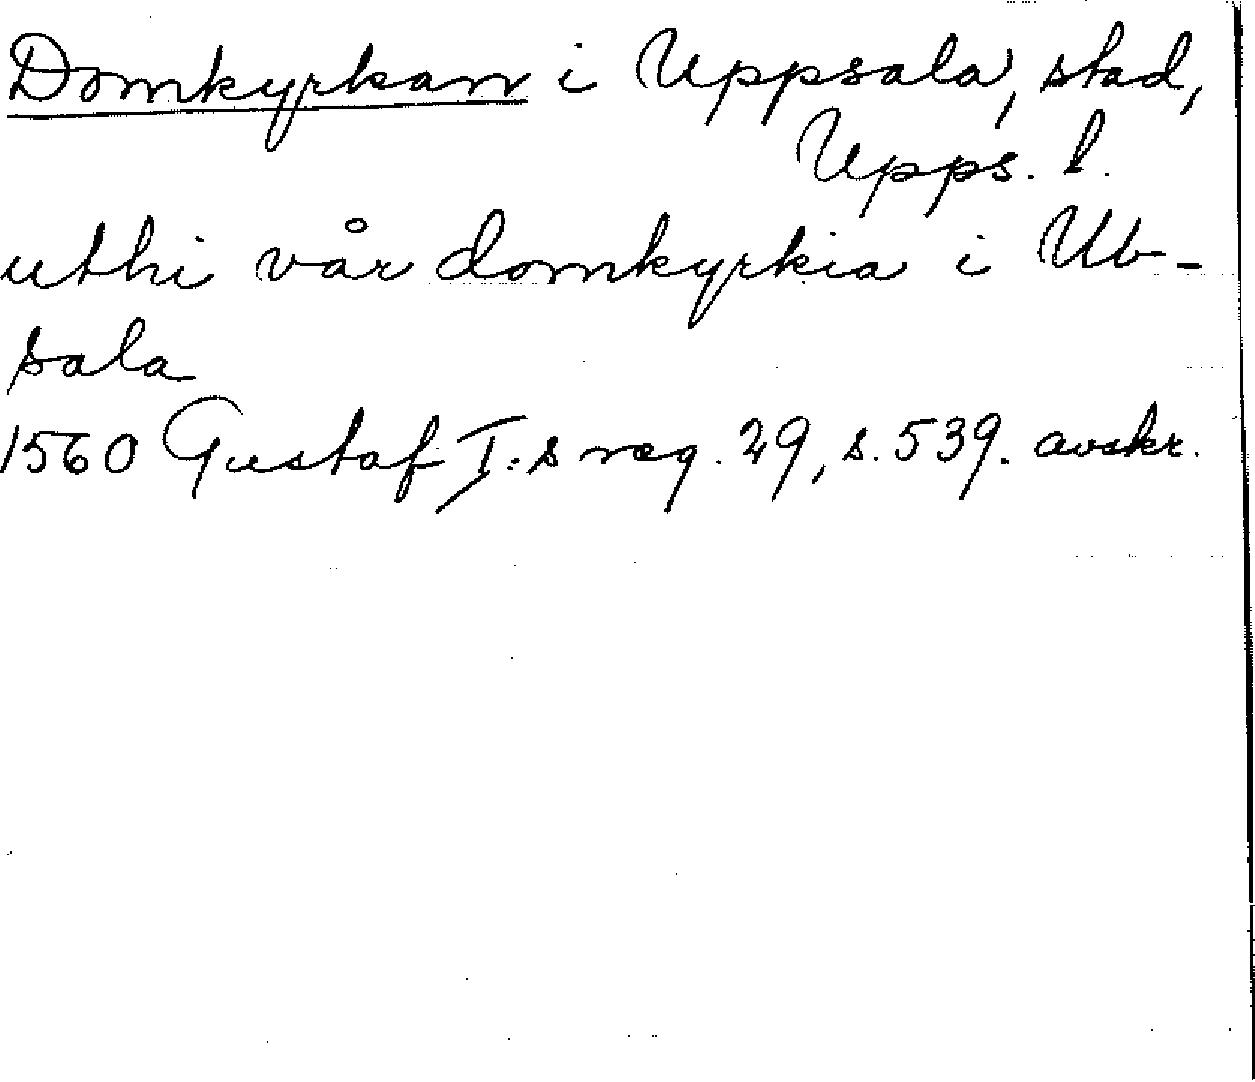 Domkyrkan i Uppsala, stad,
Upps. l.
uthi vår domkyrkia i Ub-
sala
1560 Gustaf I:s reg. 29, s. 539. avskr.